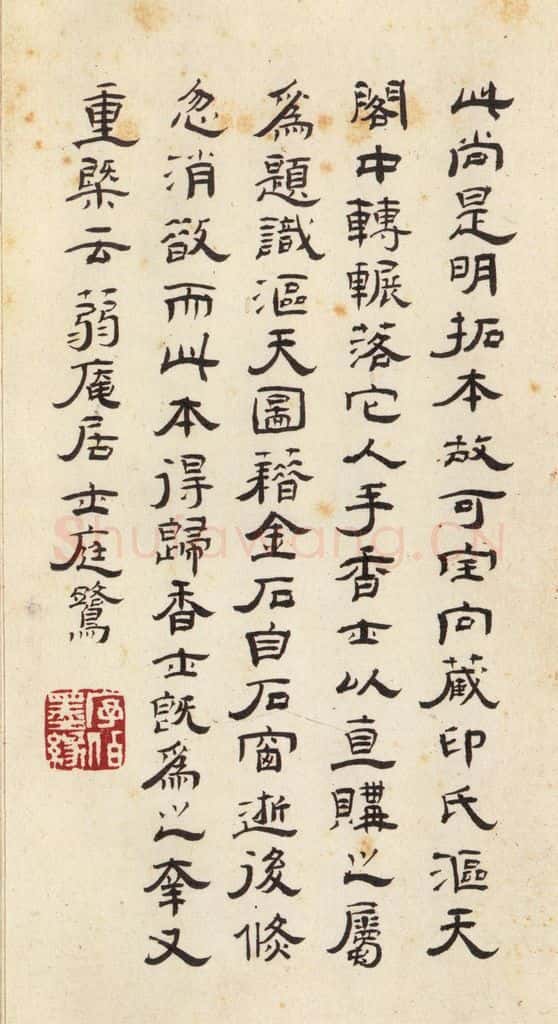 此尚是明拓本故可宝向藏印氏漚天
閣中轉輾落它人手香士以直購之屬
為題識漚天圖籍金石自石窗逝後倏
忽消散而此本得歸香士既為之幸又
重槩云蒻庵居士庭鷺
字伯
墨緣
ShufaWang.CN